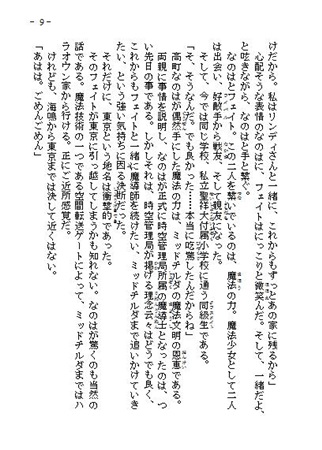 - 9 -
けだから。私はリンディさんと一緒に、これからもずっとあの家に残るから」
心配そうな表情のなのはに、フェイトはにっこりと微笑んだ。そして、一緒だよ、
と呟きながら、なのはと手と繋ぐ。
なのはとフェイト。この二人を繋いでいるのは、魔法の力。魔法少女として二人
は出会い、好敵手から戦友、そして親友になった。
そして、今では同じ学校、私立聖祥大付属小学校に通う同級生である。
「そ、そうなんだ。でも良かった……本当に吃驚したんだからね」
高町なのはが偶然手にした魔法の力は、ミッドチルダの魔法文明の恩恵である。
両親に事情を説明し、なのはが正式に時空管理局所属の魔導士となったのは、つ
い先日の事である。しかしそれは、時空管理局が掲げる理念云々はどうでも良く、
これからもフェイトと一緒に魔導師を続けたい、ミッドチルダまで追いかけていき
たい、という強い気持ちに因る決断だった。
それだけに、東京という地名は衝撃的であった。
そのフェイトが東京に引っ越してしまうかも知れない。なのはが驚くのも当然の
話である。魔法技術の一つである空間転送ゲートによって、ミッドチルダまではハ
ラオウン家から行ける。正にご近所感覚だ。
けれども、海鳴から東京までは決して近くはない。
「あはは。ごめんごめん」